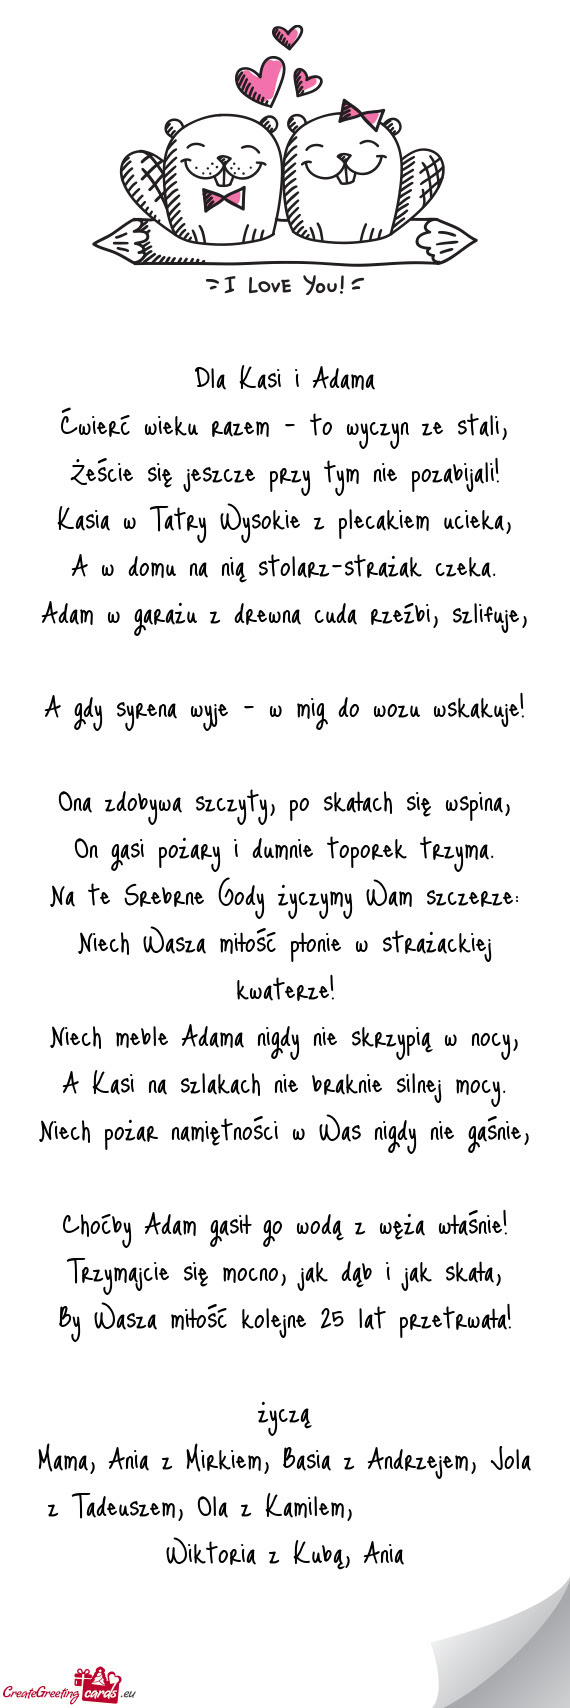 I LOVE YOU!
Dla Kasi i Adama
Ćwierć wieku razem - to wyczyn ze stali,
Żeście się jeszcze przy tym nie pozabijali!
Kasia w Tatry Wysokie z plecakiem ucieka,
A w domu na nią stolarz-strażak czeka.
Adam w garażu z drewna cuda rzeźbi, szlifuje,
A gdy syrena wyje - w mig do wozu wskakuje!
Ona zdobywa szczyty, po skałach się wspina,
On gasi pożary i dumnie toporek trzyma.
Na te Srebrne Gody życzymy Wam szczerze:
Niech Wasza miłość płonie w strażackiej
kwaterze!
Niech meble Adama nigdy nie skrzypią w nocy,
A Kasi na szlakach nie braknie silnej mocy.
Niech pożar namiętności w Was nigdy nie gaśnie,
Choćby Adam gasił go wodą z węża właśnie!
Trzymajcie się mocno, jak dąb i jak skała,
By Wasza miłość kolejne 25 lat przetrwała!
życzą
Mama, Ania z Mirkiem, Basia z Andrzejem, Jola
z Tadeuszem, Ola z Kamilem,
Wiktoria z Kubą, Ania
CreateGreeting cards .eu